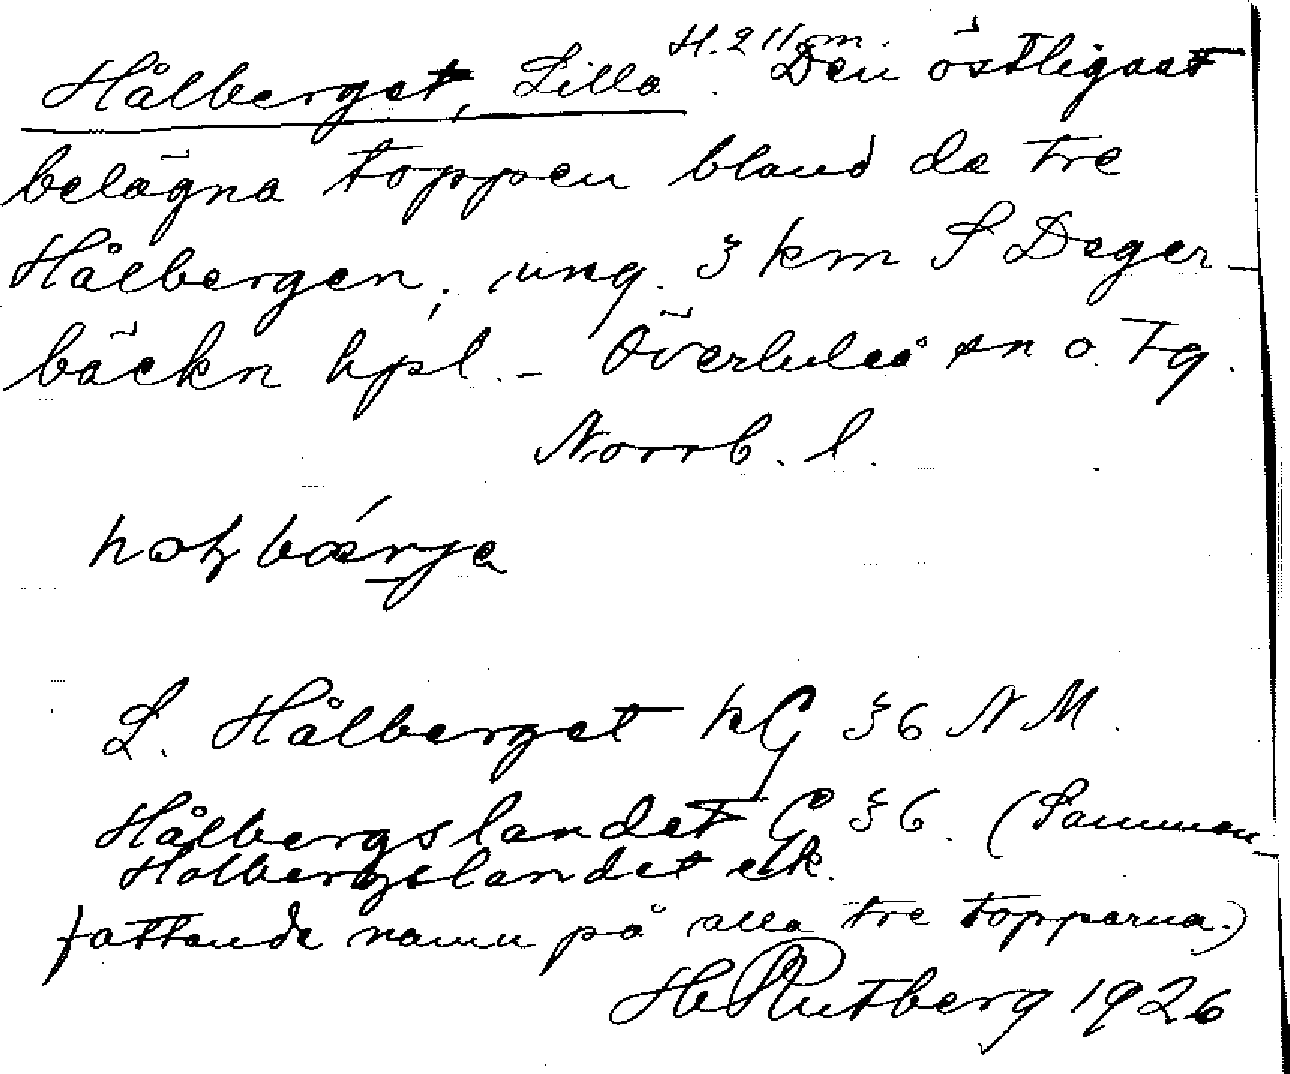 Hålberget, Lilla. H. 211 m. Den östligast
belägna toppen bland de tre
Hålbergen, ung. 3 km S Deger-
bäckn hpl. - Överluleå sn o. Tg.
Norrb. l.
L. Hålberget kG 36 NM.
Hålbergslandet G 36. (Samman-
Holbergslandet ek.
fattande namn på alla tre topparna.)
H Rutberg 1926